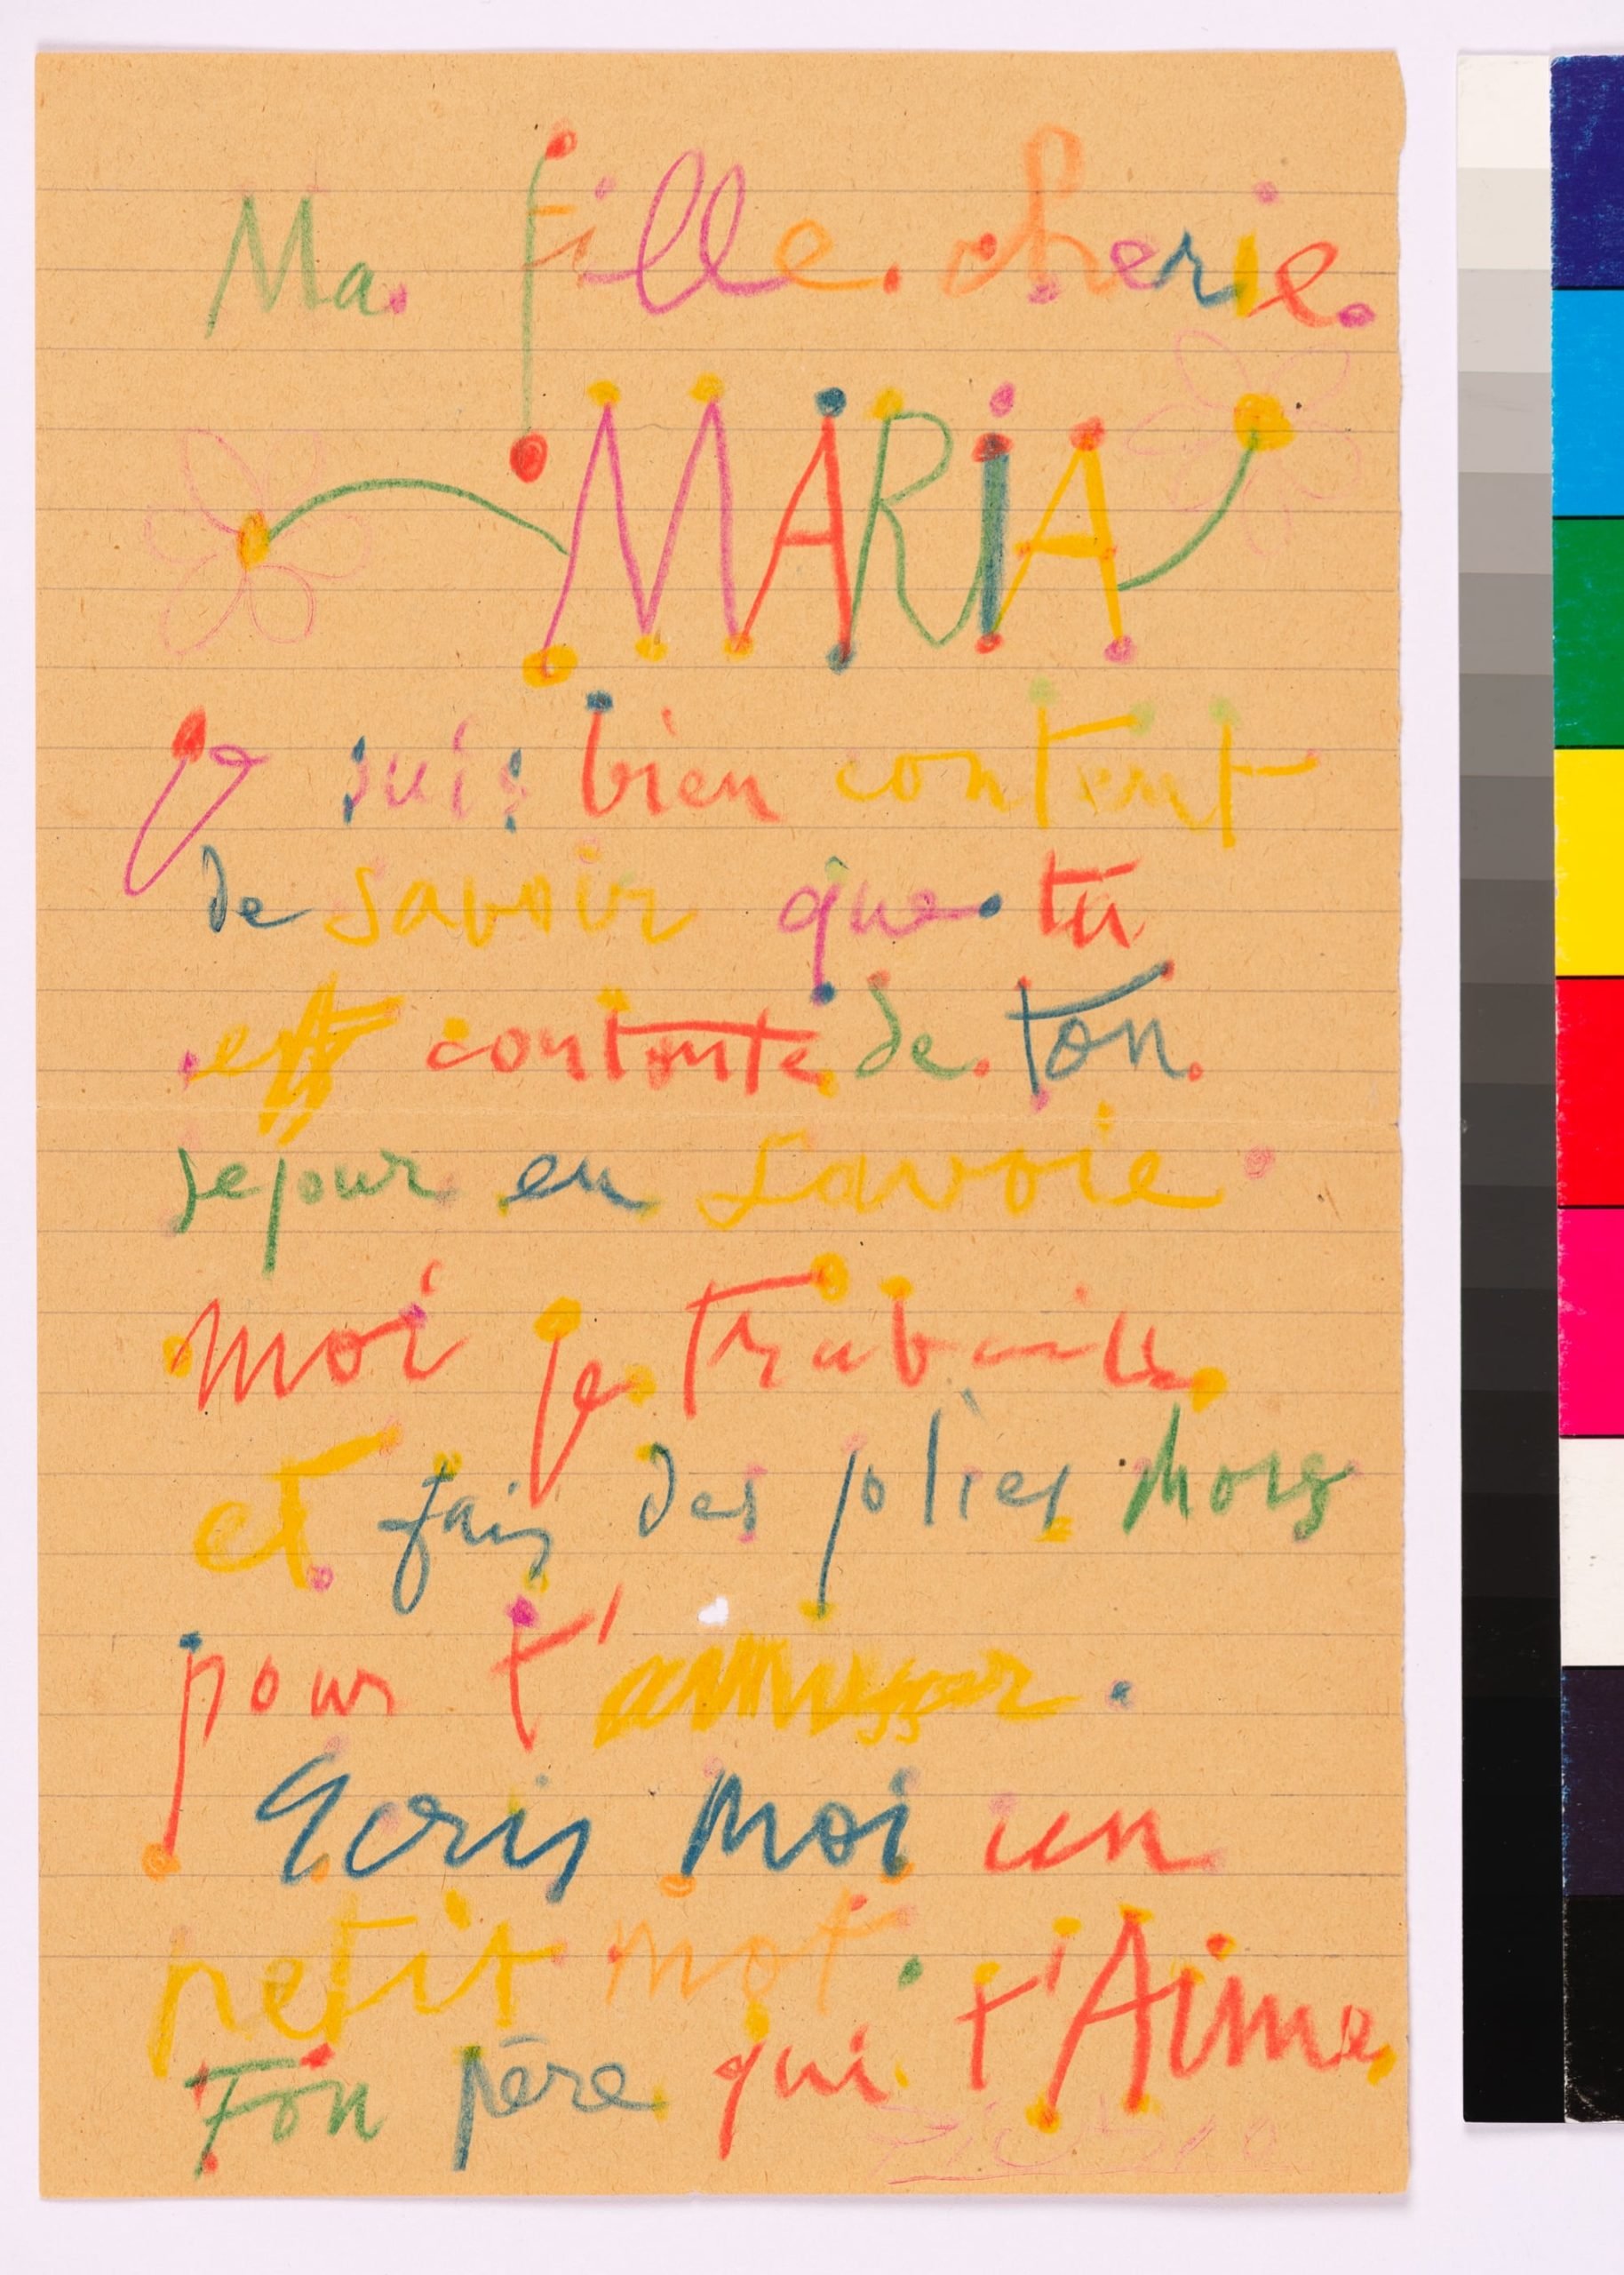 Ma fille cherie
MARIA
Je suis bien content
de savoir que tu
est contente de ton
sejour en Savoie
moi je travaille
et fais des jolies
pour t'amuser.
Ecris moi un
petit mot.
Ton père qui t'Aime
Picasso